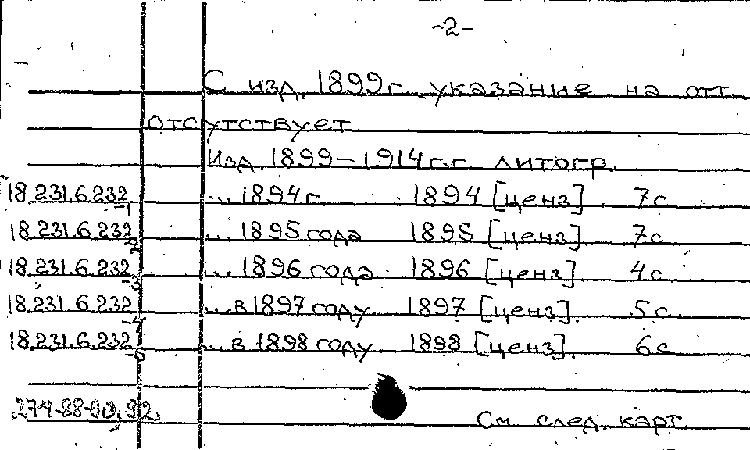 -2-
С изд. 1899г. указание на отт.
отсутствует
Изд. 1899-1914г.г. литогр.
18.231.6.232/1 ... 1894г 1894 [ценз] 7с.
18.231.6.232/2 ... 1895 года 1895 [ценз] 7с.
18.231.6.232/3 ... 1896 года 1896 [ценз] 4с.
18.231.6.232/4 ... в 1897 году 1897 [ценз]. 5с.
18.231.6.232/5 ... в 1898 году 1898 [ценз]. 6с
См. след. карт.